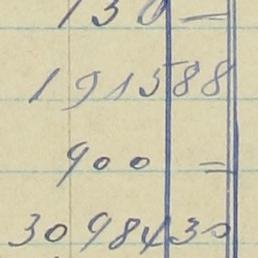 130 —
1915 88
900 =
30984 30